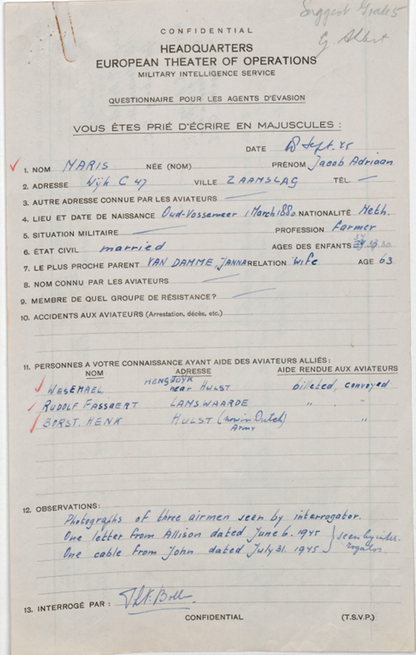 CONFIDENTIAL
Suggest Grade 5
HEADQUARTERS
EUROPEAN THEATER OF OPERATIONS
MILITARY INTELLIGENCE SERVICE
QUESTIONNAIRE POUR LES AGENTS D'ÉVASION
VOUS ÊTES PRIÉ D'ÉCRIRE EN MAJUSCULES :
DATE Sept. 45
1. NOM NARIS NÉE (NOM) PRÉNOM Jacob Adriaan
2. ADRESSE Wijk C 47 VILLE ZAAMSLAG TÉL —
3. AUTRE ADRESSE CONNUE PAR LES AVIATEURS —
4. LIEU ET DATE DE NAISSANCE Oud-Vossemeer 1 March 1880 NATIONALITÉ Neth.
5. SITUATION MILITAIRE — PROFESSION farmer
6. ÉTAT CIVIL married AGES DES ENFANTS
7. LE PLUS PROCHE PARENT VAN DAMME, JANNA RELATION wife AGE 63
8. NOM CONNU PAR LES AVIATEURS —
9. MEMBRE DE QUEL GROUPE DE RÉSISTANCE? —
10. ACCIDENTS AUX AVIATEURS (Arrestation, décès, etc.)
11. PERSONNES A VOTRE CONNAISSANCE AYANT AIDE DES AVIATEURS ALLIÉS:
NOM ADRESSE AIDE RENDUE AUX AVIATEURS
WESEMAEL near HULST billeted, convoyed
RUDOLF FASSAERT LAMSWAARDE " "
BORST. HENK HULST (now in Dutch Army " "
12. OBSERVATIONS:
Photographs of three airmen seen by interrogator.
One letter from Allison dated June 6. 1945 } seen by inter-
One cable from John dated July 31. 1945 } rogator.
13. INTERROGÉ PAR :
CONFIDENTIAL (T.S.V.P.)